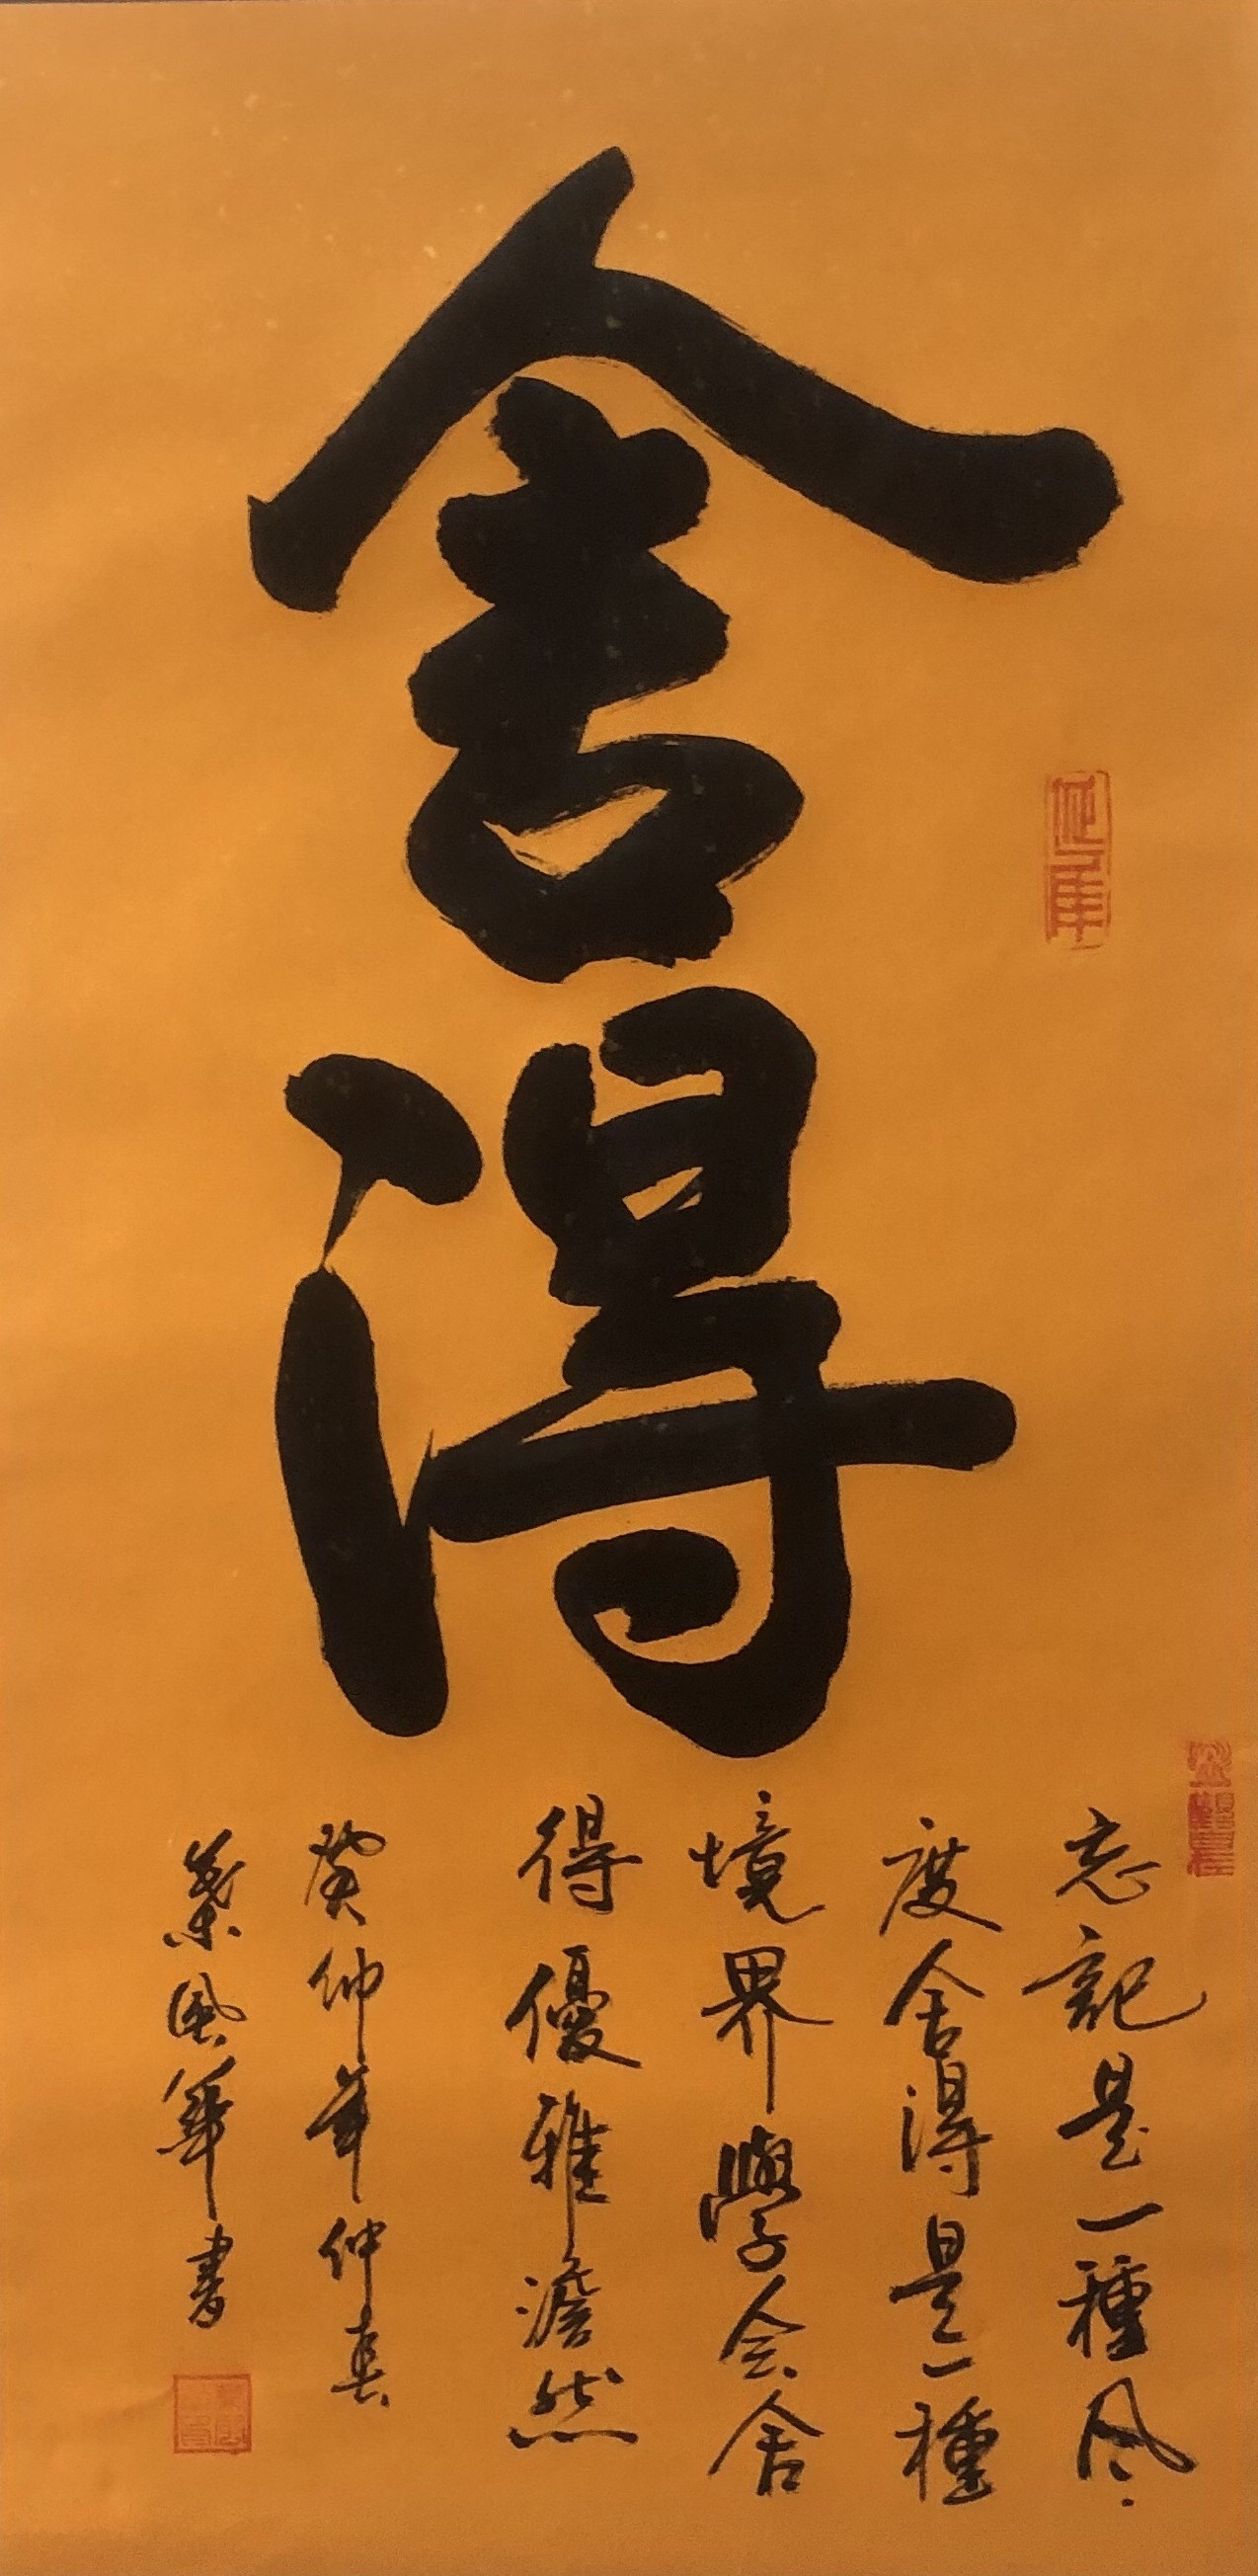 舍得
忘記是一種风
度舍得是一種
境界學会舍
得優雅澹然
癸卯年仲春
葉風華書